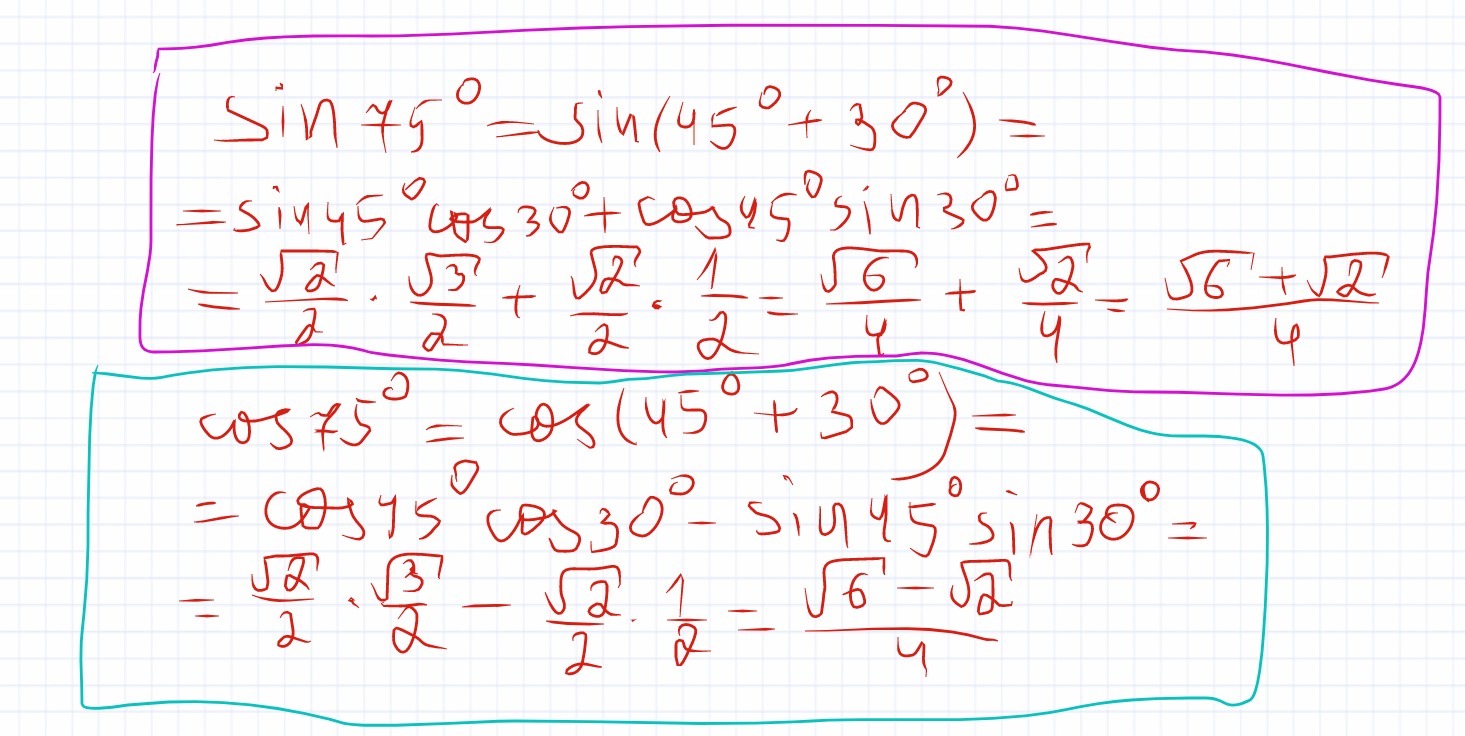 sin 75° = sin(45° + 30°) =
= sin 45° cos 30° + cos 45° sin 30° =
= √2/2 · √3/2 + √2/2 · 1/2 = √6/4 + √2/4 = (√6 + √2)/4
cos 75° = cos(45° + 30°) =
= cos 45° cos 30° − sin 45° sin 30° =
= √2/2 · √3/2 − √2/2 · 1/2 = (√6 − √2)/4